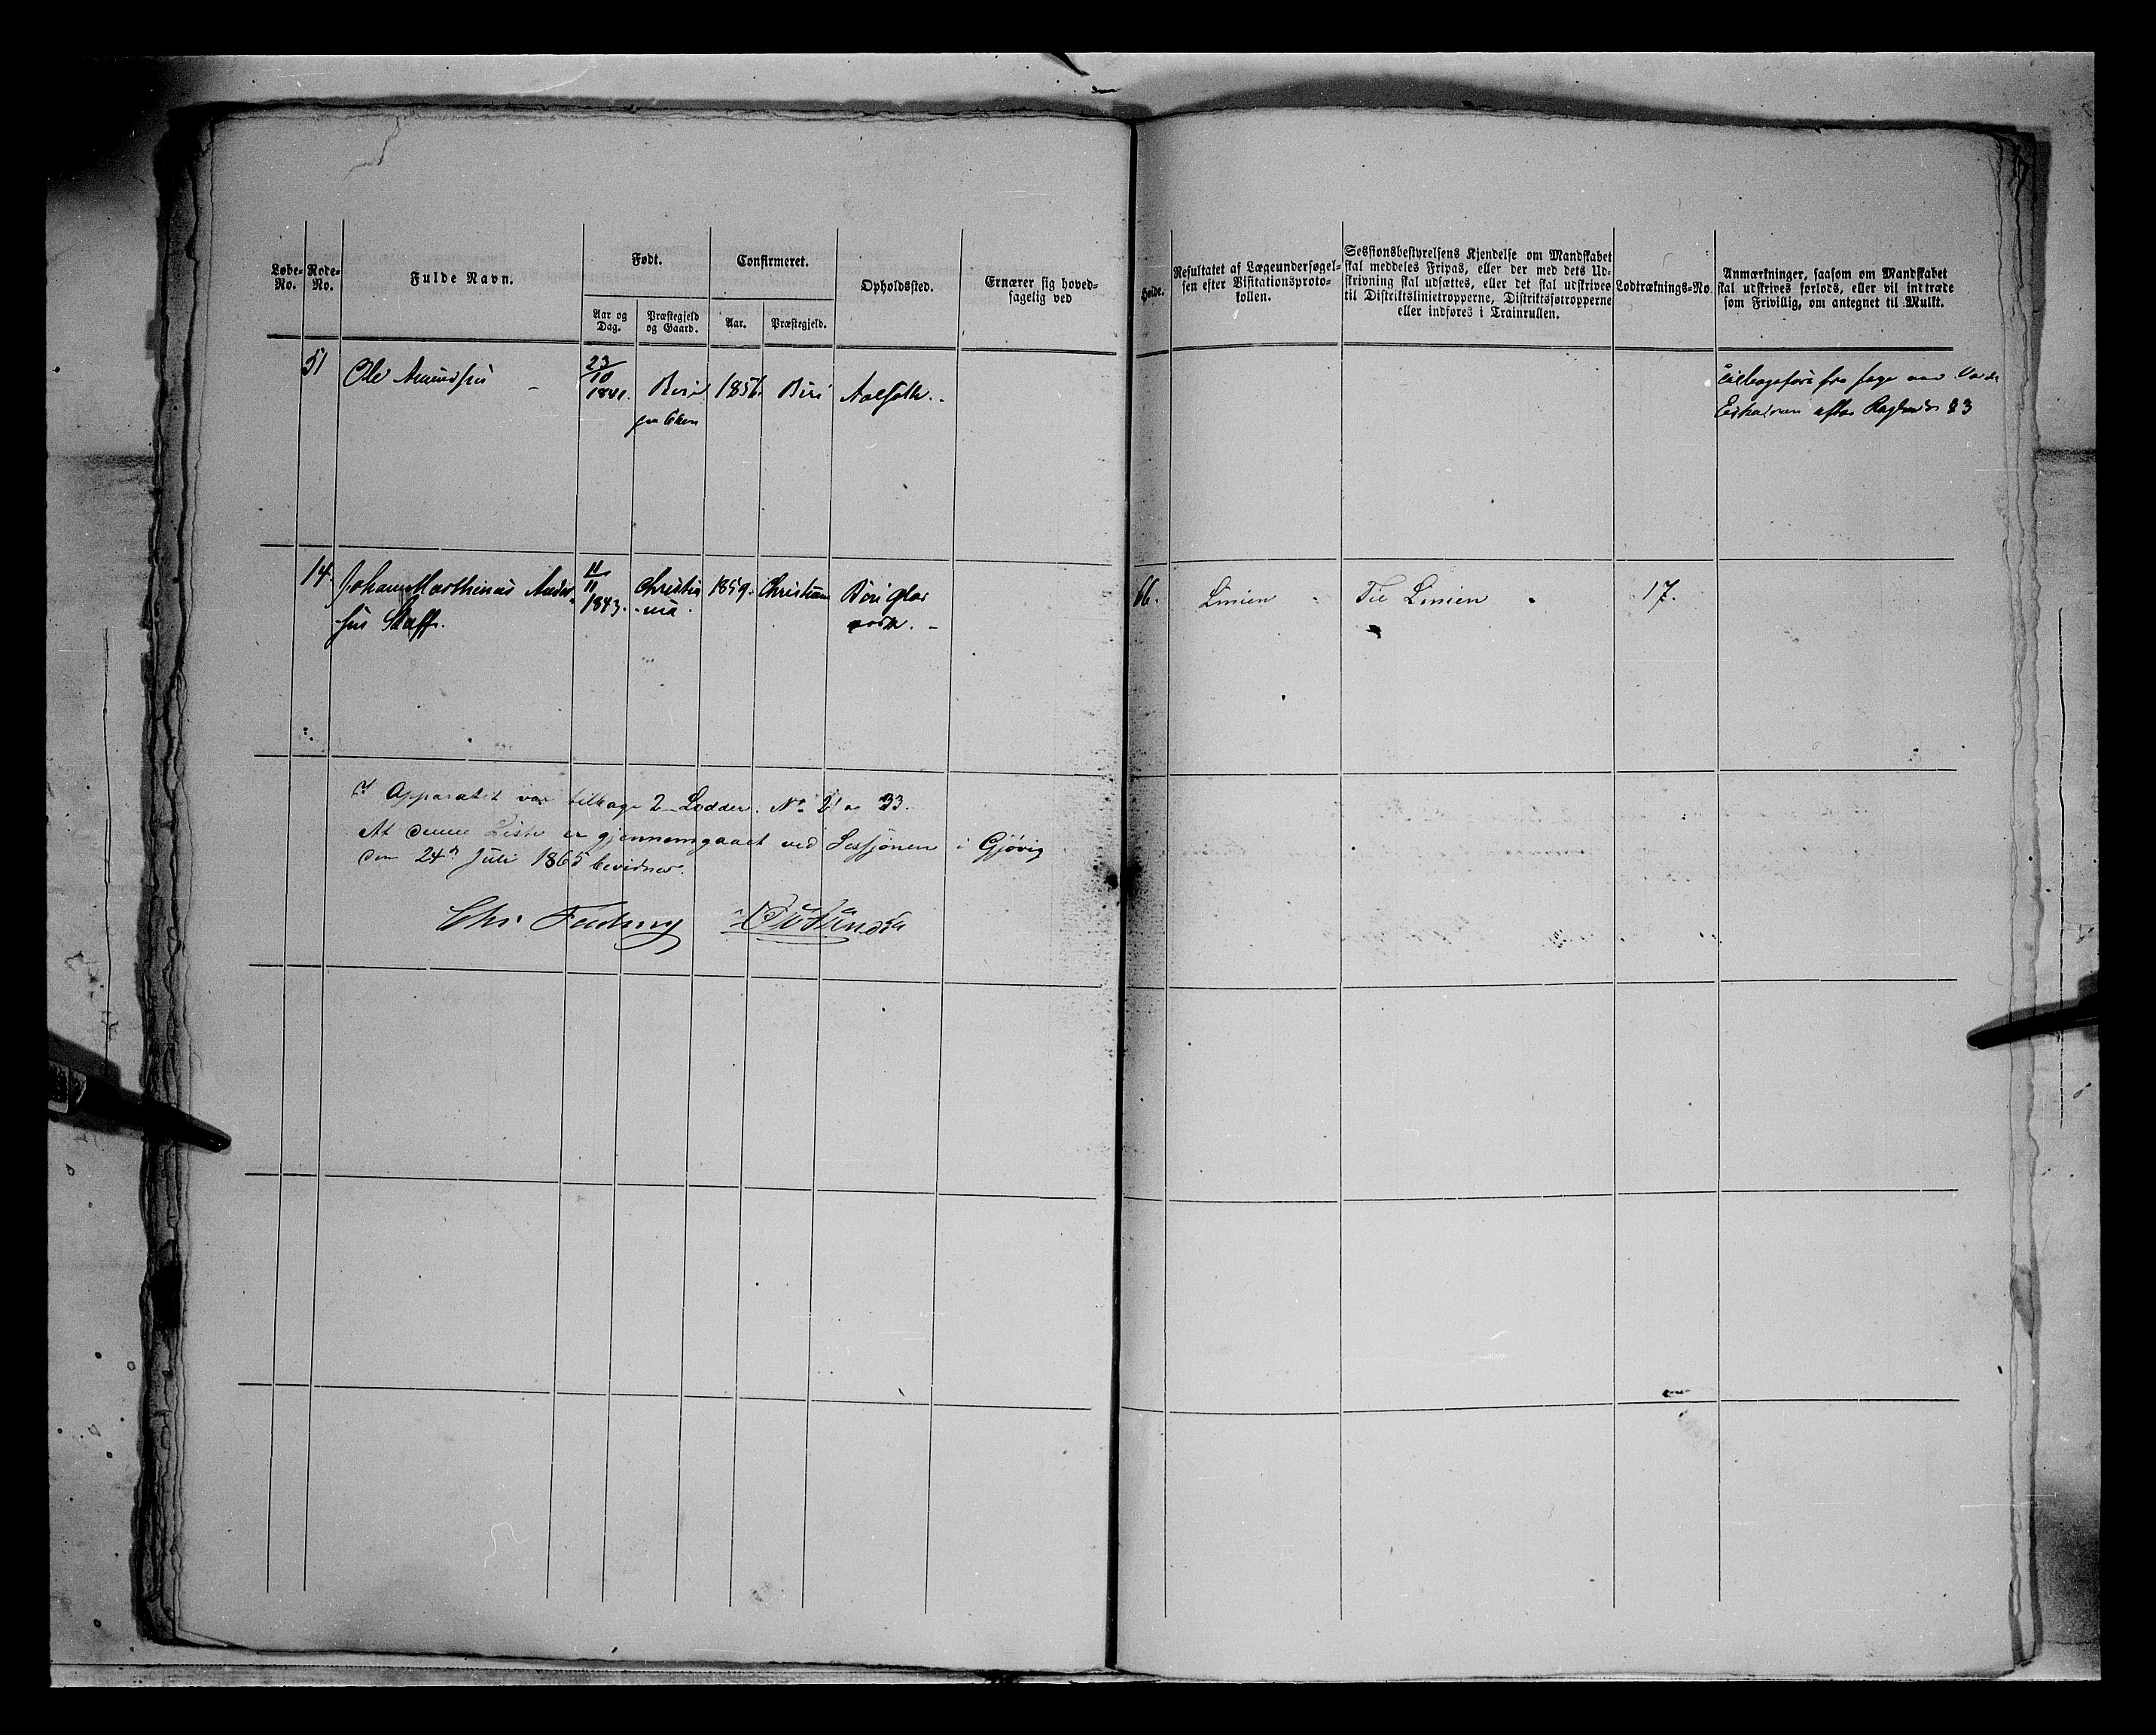 Løbe-No.
Rode-No.
Fulde Navn.
Født.
Aar og Dag.
Præstegjeld og Gaard.
Confirmeret.
Aar.
Præstegjeld.
Opholdssted.
Ernærer sig hoved-
sagelig ved
Høide.
Resultatet af Lægeundersøgel-
sen efter Visitationsproto-
kollen.
Sessionsbestyrelsens Kjendelse om Mandskabet
skal meddeles Fripas, eller der med dets Ud-
skrivning skal udsættes, eller det skal udskrives
til Distriktslinietropperne, Distriktsfotropperne
eller indføres i Trainrullen.
Lodtræknings-No.
Anmærkninger, saasom om Mandskabet
skal udskrives forlods, eller vil indtræde
som Frivillig, om antegnet til Mulkt.
51
Ole Amundsen
23/10
1841.
Biri
1856.
Biri
Aalseth.
Tilbageført fra
efter §3
14.
Johan Marthinus Ander-
sen Skaff.
11/11
1843.
Christia
-nia.
1859.
Christiania
Biri Glas
værk.
66.
Linien
Til Linien
17.
I Apparatet var tilbage 2 Lodder. No 21 og 33.
At denne Liste er gjennemgaaet ved Sessjonen i Gjøvig
den 24de Juli 1865 bevidnes.
Chr